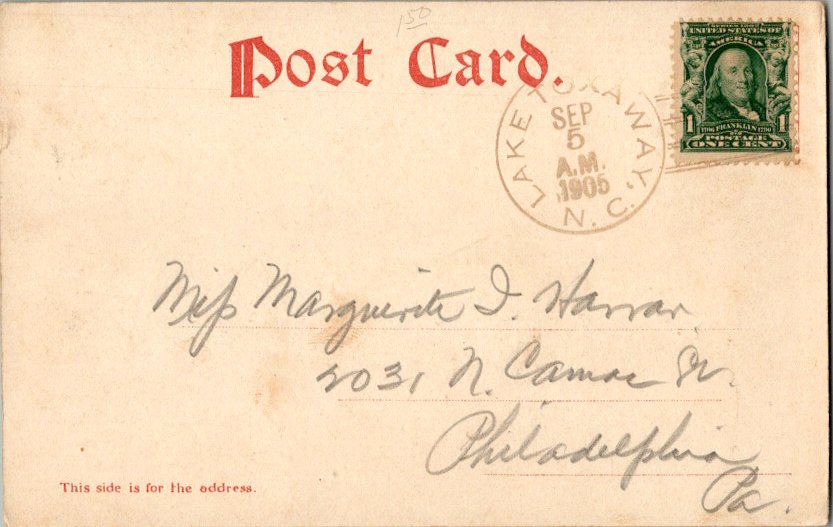 1 50
Post Card.
SERIES 1902
UNITED STATES OF
AMERICA
1 1706 FRANKLIN 1790 1
POSTAGE
ONE CENT
LAKE TOXAWAY, N. C.
SEP
5
A.M.
1905
Miss Marguerite I. Harrar
2031 N. Camac St.
Philadelphia
Pa.
This side is for the address.